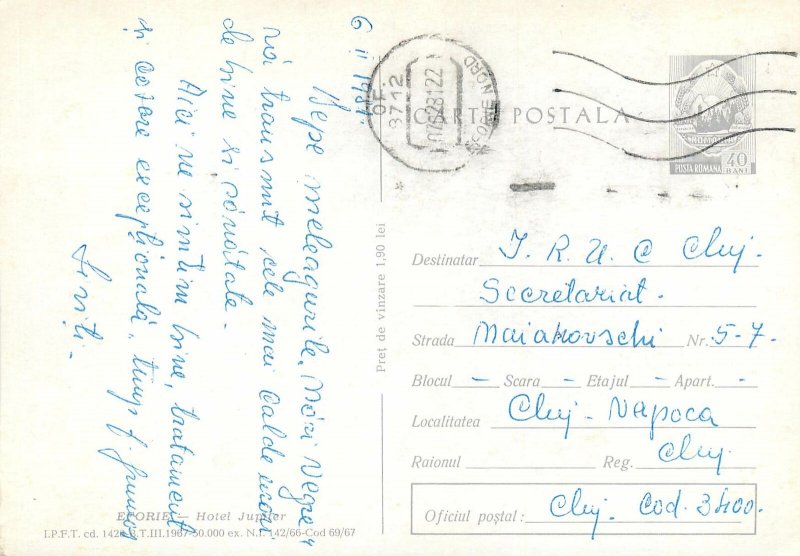 6 II 1981
Depe meleagurile Mării Negre,
vă transmit cele mai calde urări
de bine și sănătate.
Aici ne simțim bine, tratament
și cazare excepțională, timp f. frumos
CARTE POSTALA
OF.
8712
EFORIE NORD
POSTA ROMANA
40
BANI
Destinatar I. R. U. C Cluj.
Secretariat.
Strada Maiakovschi Nr. 5-7.
Blocul – Scara – Etajul – Apart. -
Localitatea Cluj-Napoca
Raionul Reg. Cluj
Oficiul poștal: Cluj. Cod. 3400.
Preț de vînzare 1,90 lei
EFORIE — Hotel Jupiter
I.P.F.T. cd. T.III.1967-50.000 ex. N.I. 142/66-Cod 69/67